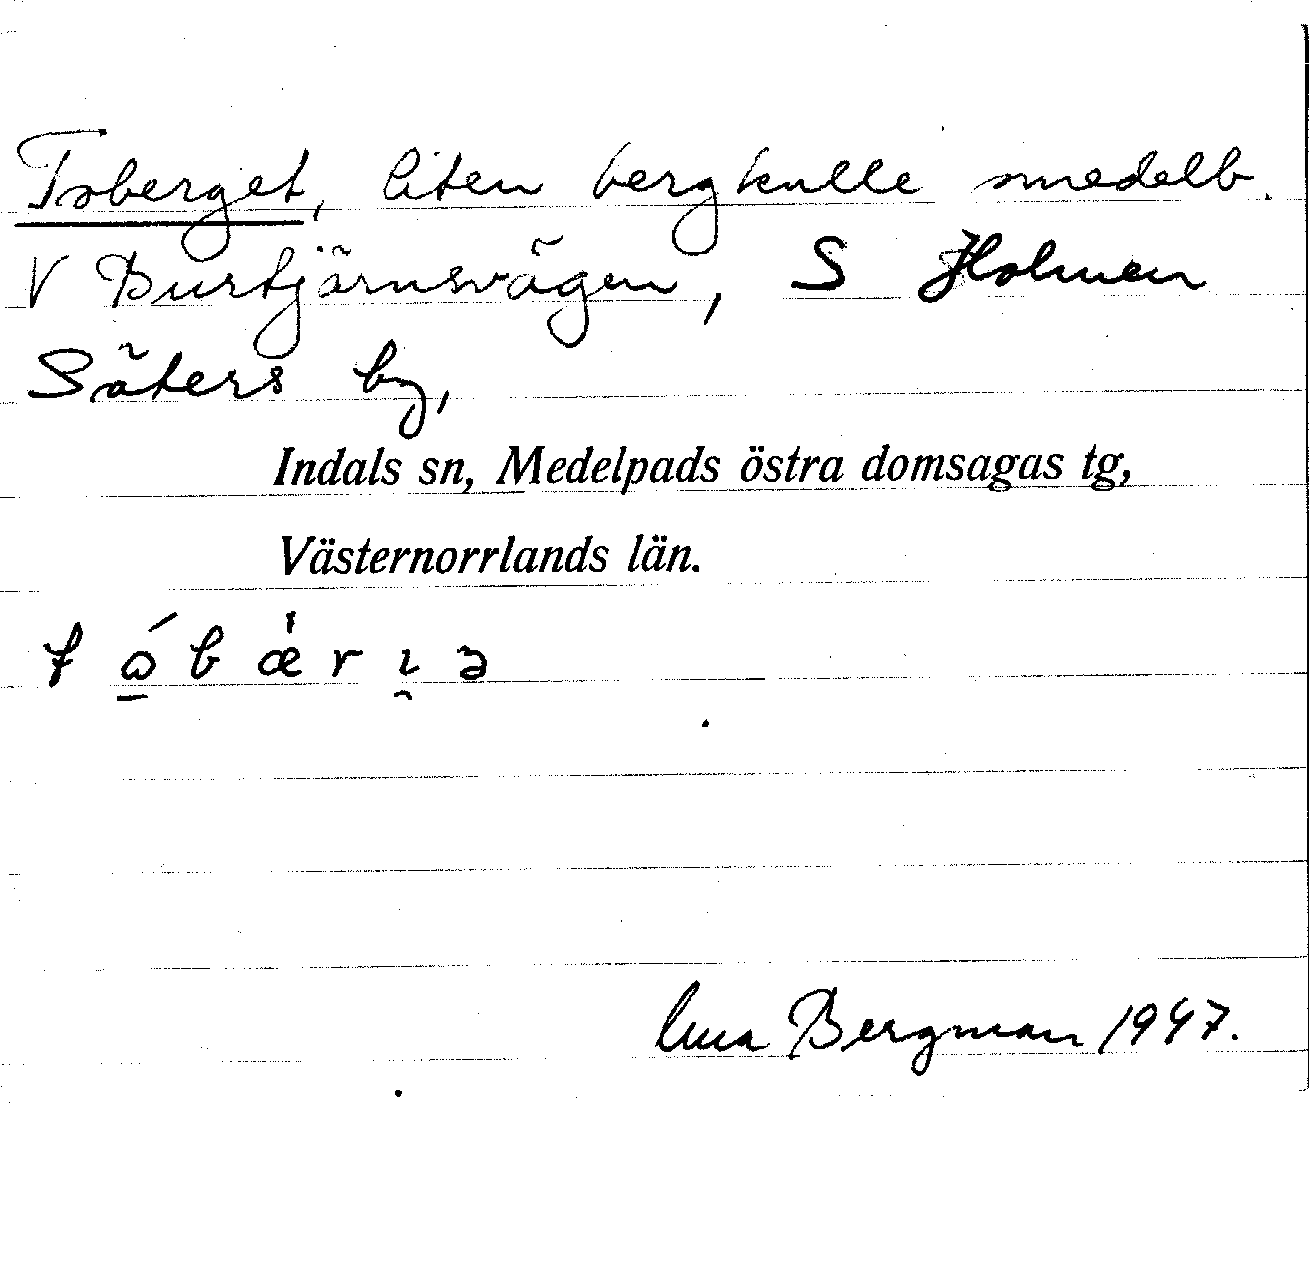 Toberget, liten bergkulle omedelb.
V Burtjärnsvägen, S Holmen
Säters by,
Indals sn, Medelpads östra domsagas tg,
Västernorrlands län.
Bergman 1947.